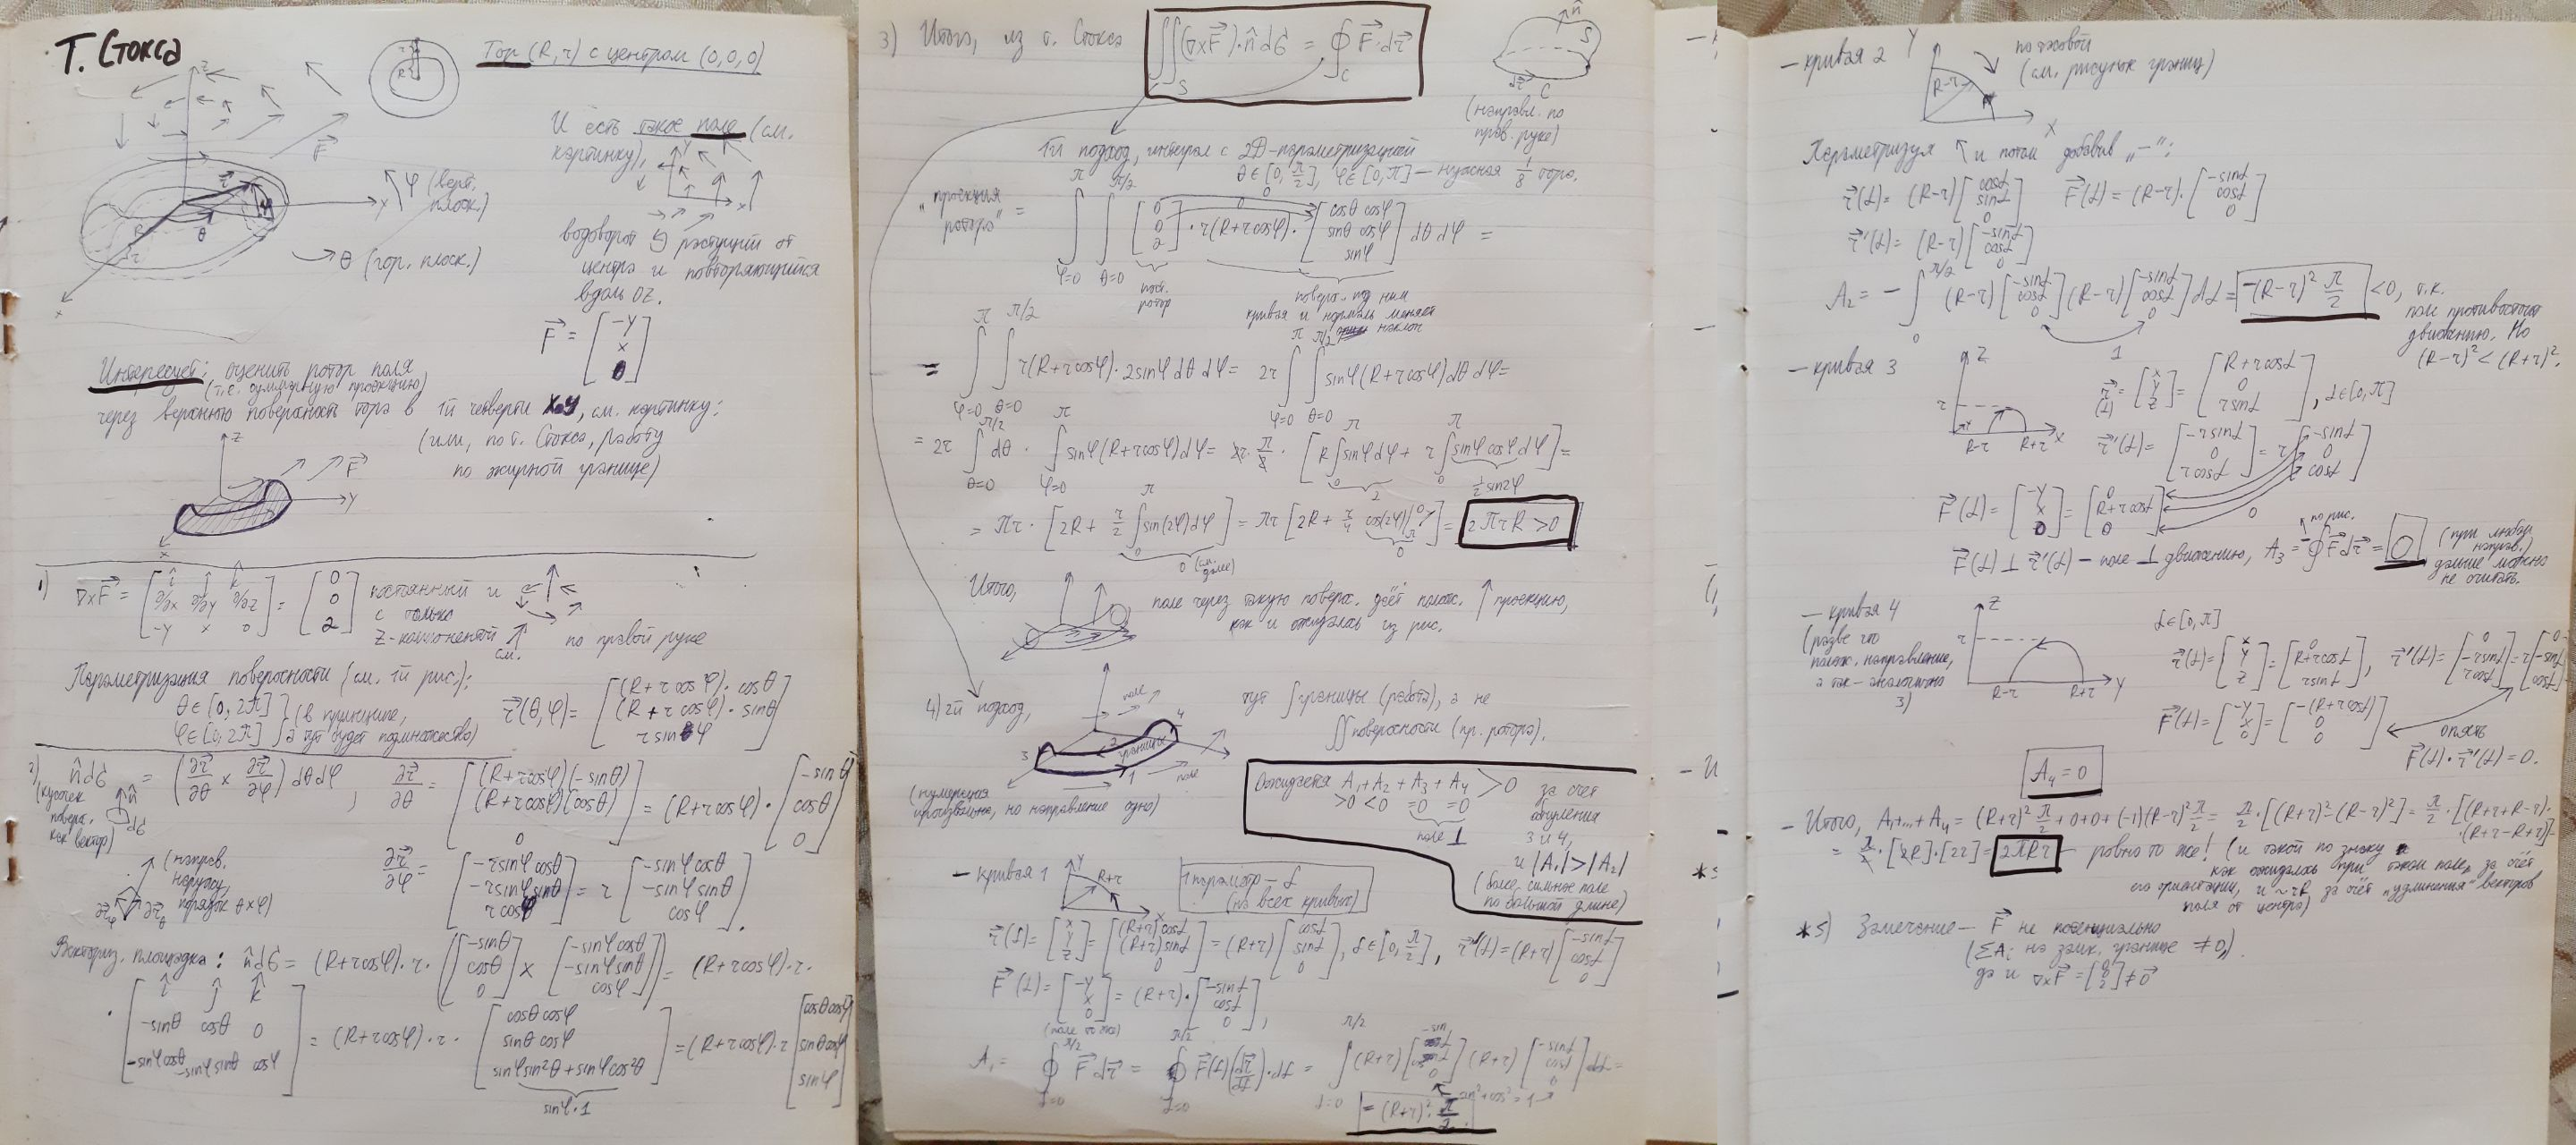 Т. Стокса
Тор (R, r) с центром (0,0,0)
И есть такое поле (см.
картинку),
водоворот растущий от
центра и повторяющийся
вдоль OZ.
φ (верт. плоск.)
θ (гор. плоск.)
F = [-y x 0]
Интересует: оценить ротор поля
(т.е. суммарную проекцию)
через верхнюю поверхность тора в 1й четверти XOY, см. картинку:
(или, по т. Стокса, работу
по жирной границе)
1) ∇×F = [i j k; ∂/∂x ∂/∂y ∂/∂z; -y x 0] = [0 0 2] постоянный и
с только
z-компонентой
см. по правой руке
Параметризация поверхности (см. 1й рис.):
θ∈[0, 2π] (в принципе,
φ∈[0, 2π] а тут будет подмножество)
r(θ,φ) = [(R+r cosφ)·cosθ (R+r cosφ)·sinθ r sinφ]
2) n̂dσ = (∂r/∂θ × ∂r/∂φ) dθdφ, ∂r/∂θ = [(R+rcosφ)(-sinθ) (R+rcosφ)(cosθ) 0] = (R+rcosφ)·[-sinθ cosθ 0]
(кусочек
поверх.
как вектор)
(направ.
наружу,
порядок θ×φ)
∂r/∂φ = [-rsinφcosθ -rsinφsinθ rcosφ] = r [-sinφcosθ -sinφsinθ cosφ].
Векториз. площадка: n̂dσ = (R+rcosφ)·r·([-sinθ cosθ 0] × [-sinφcosθ -sinφsinθ cosφ]) = (R+rcosφ)·r·
·[i j k; -sinθ cosθ 0; -sinφcosθ -sinφsinθ cosφ] = (R+rcosφ)·r·[cosθcosφ sinθcosφ sinφsin²θ+sinφcos²θ] = (R+rcosφ)·r [cosθcosφ sinθcosφ sinφ]
sinφ·1
3) Итого, из т. Стокса ∬(∇×F)·n̂dσ = ∮F·dr
S C
(направл. по
прав. руке)
1й подход, интеграл с 2D-параметризацией
θ∈[0, π/2], φ∈[0, π] — нужная 1/8 тора.
"проекция
ротора" = ∫∫ [0 0 2]·r(R+rcosφ)·[cosθcosφ sinθcosφ sinφ] dθdφ =
φ=0 θ=0
пост.
ротор
поверх. под ним
кривая и нормаль меняет
наклон
= ∫∫ r(R+rcosφ)·2sinφdθdφ = 2r ∫∫ sinφ(R+rcosφ)dθdφ =
= 2r ∫dθ · ∫sinφ(R+rcosφ)dφ = 2r·π/2·[R∫sinφdφ + r∫sinφcosφdφ] =
1/2 sin2φ
= πr·[2R + r/2 ∫sin(2φ)dφ] = πr[2R + r/4 cos(2φ)] = 2πrR > 0
0 (см. далее)
Итого, поле через такую поверх. даёт полож. ↑ проекцию,
как и ожидалось из рис.
4) 2й подход, тут ∫границы (работа), а не
∬поверхности (пр. ротора).
(нумерация
произвольна, но направление одно)
Ожидается A₁+A₂+A₃+A₄ > 0 за счёт
>0 <0 =0 =0 обнуления
поле ⊥ 3 и 4,
и |A₁|>|A₂|
(более сильное поле
по большой длине)
— кривая 1 1 параметр — α
(на всех кривых)
r(α) = [x y z] = [(R+r)cosα (R+r)sinα 0] = (R+r)[cosα sinα 0], α∈[0, π/2], r'(α) = (R+r)[-sinα cosα 0]
F(α) = [-y x 0] = (R+r)·[-sinα cosα 0],
(поле то же)
A₁ = ∮F dr = ∮F(α)(dr/dα)·dα = ∫(R+r)[-sinα cosα 0](R+r)[-sinα cosα 0]dα =
sin²+cos²=1
= (R+r)²·π/2.
— кривая 2 по часовой
(см. рисунок границ)
Параметризуя ↖ и потом добавив „-":
r(α) = (R-r)[cosα sinα 0] F(α) = (R-r)·[-sinα cosα 0]
r'(α) = (R-r)[-sinα cosα 0]
A₂ = -∫(R-r)[-sinα cosα 0](R-r)[-sinα cosα 0]dα = -(R-r)² π/2 <0, т.к.
поле противостоит
движению. Но
(R-r)² < (R+r)².
— кривая 3 r(α) = [x y z] = [R+rcosα 0 rsinα], α∈[0,π]
r'(α) = [-rsinα 0 rcosα] = r[-sinα 0 cosα]
F(α) = [-y x 0] = [0 R+rcosα 0]
F(α) ⊥ r'(α) — поле ⊥ движению, A₃ = ∮Fdr = 0 (при любом
направ.)
дальше можно
не считать.
по рис.
— кривая 4
(разве что
полож. направление,
а так — аналогично
3)
α∈[0,π]
r(α) = [x y z] = [0 R+rcosα rsinα], r'(α) = [0 -rsinα rcosα] = r[0 -sinα cosα]
F(α) = [-y x 0] = [-(R+rcosα) 0 0]
опять
F(α)·r'(α) = 0.
A₄ = 0
— Итого, A₁+...+A₄ = (R+r)² π/2 + 0+0+(-1)(R-r)² π/2 = π/2·[(R+r)²-(R-r)²] = π/2·[(R+r+R-r)·
·(R+r-R+r)] =
= π/2·[2R]·[2r] = 2πRr — ровно то же! (и такой по знаку
как ожидалось при таком поле, за счёт
его ориентации, и ~rR за счёт „удлинения" векторов
поля от центра)
*5) Замечание — F не потенциально
(ΣAᵢ на замк. границе ≠0,)
да и ∇×F = [0 0 2] ≠ 0